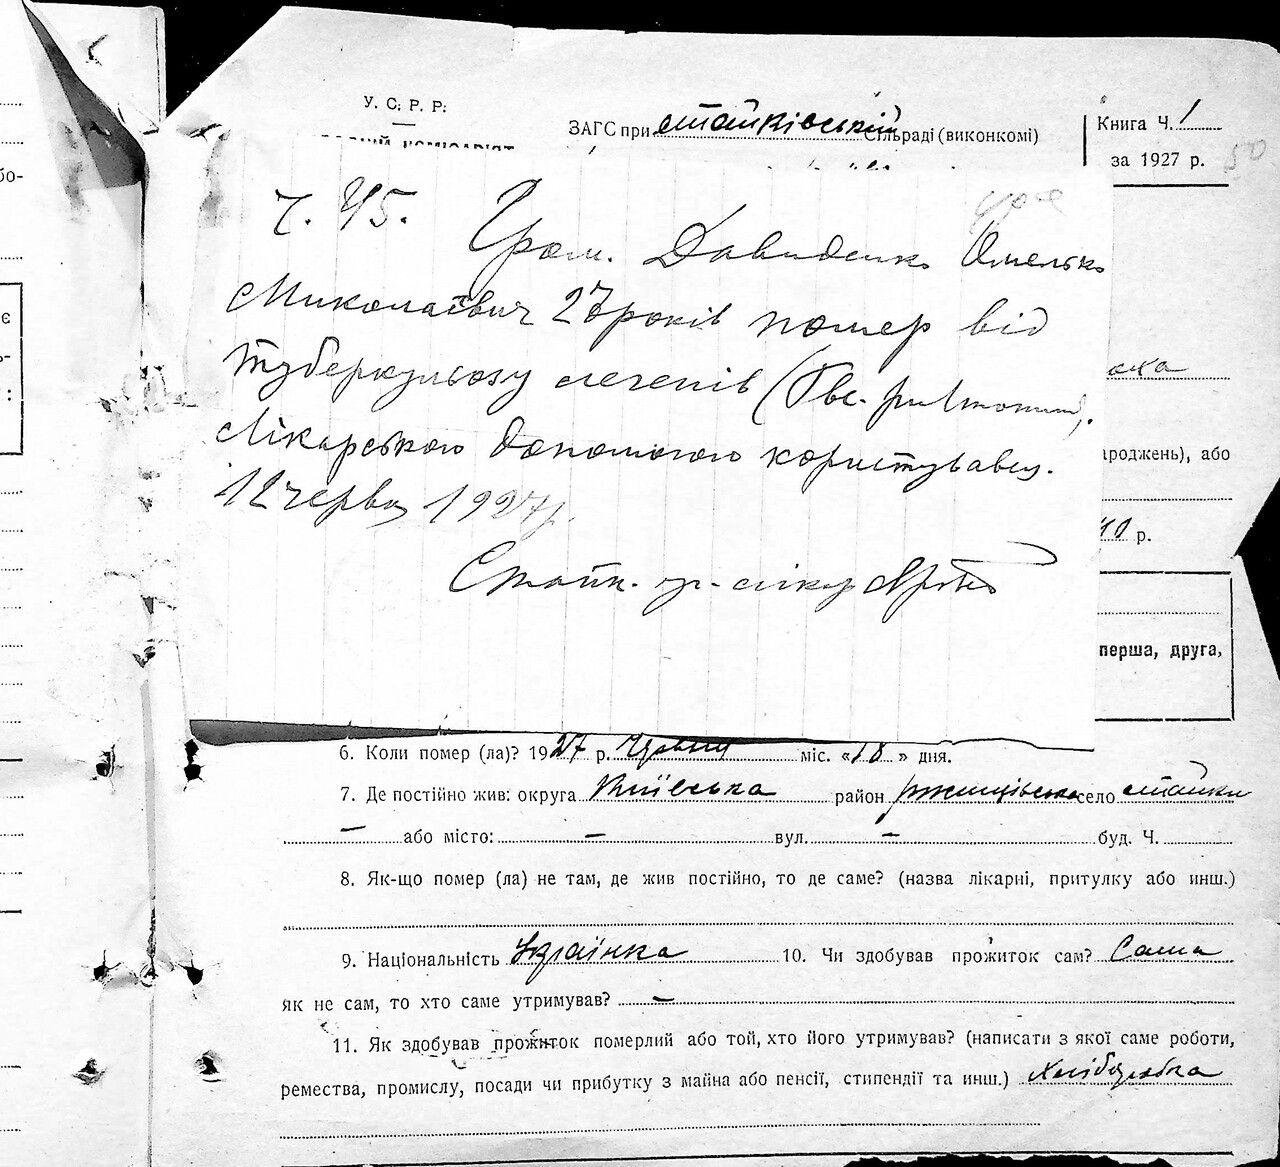 У. С. Р. Р.
ЗАГС при Стайківській Сільраді (виконкомі)
Книга Ч. 1
за 1927 р.
50
бо-
є
Ч. 45.
Гром. Давиденко Омелько
Миколаївич 27 років помер від
туберкульозу легенів (Tbc. pulmonum).
Лікарською допомогою користувавсь.
12 червня 1927 р.
Стайк. лікар
ароджень), або
40 р.
перша, друга,
6. Коли помер (ла)? 1927 р. Червня міс. «18» дня.
7. Де постійно жив: округа Київська район Ржищівська село Стайки
— або місто: — вул. — буд. Ч.
8. Як-що помер (ла) не там, де жив постійно, то де саме? (назва лікарні, притулку або инш.)
9. Національність Українка 10. Чи здобував прожиток сам? Сама
як не сам, то хто саме утримував? —
11. Як здобував прожиток померлий або той, хто його утримував? (написати з якої саме роботи,
ремества, промислу, посади чи прибутку з майна або пенсії, стипендії та инш.) Хліборобка